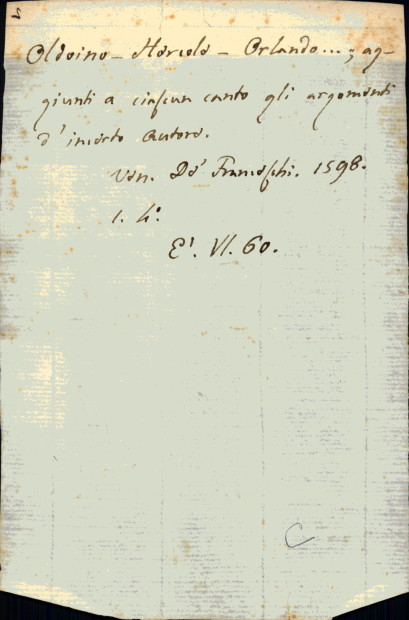 Oldoino - Hercole - Orlando...; ag-
giunti a ciascun canto gli argomenti
d'incerto Autore.
Ven. De' Franceschi. 1598.
1. 4.º
E'. VI. 60.
C